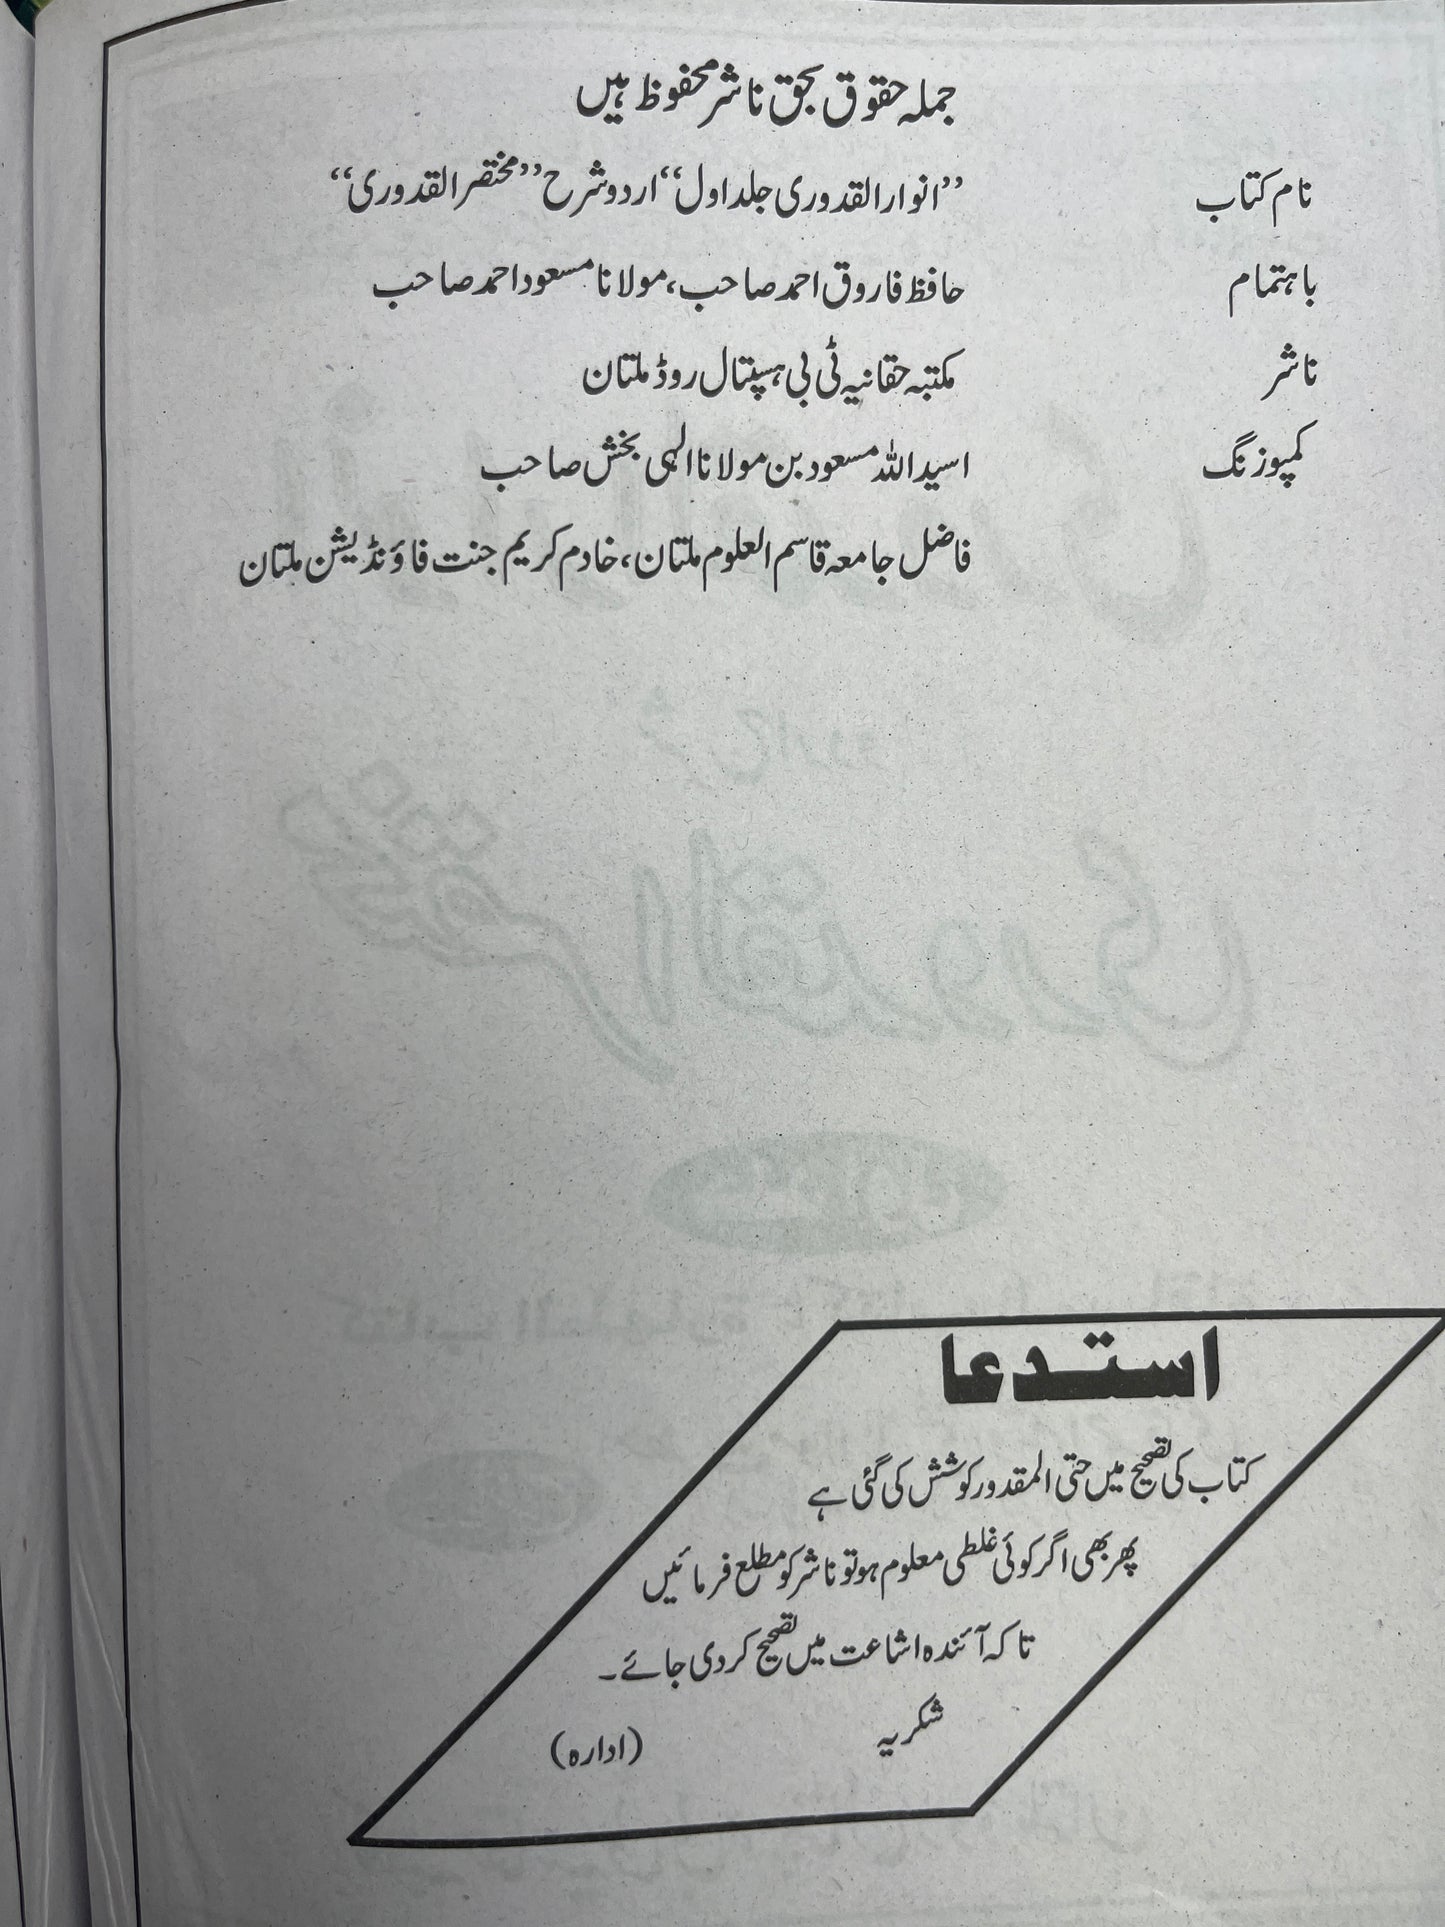 جملہ حقوق بحق ناشر محفوظ ہیں
نام کتاب ”انوار القدوری جلد اول“ اردو شرح ”مختصر القدوری“
باہتمام حافظ فاروق احمد صاحب، مولانا مسعود احمد صاحب
ناشر مکتبہ حقانیہ ٹی بی ہسپتال روڈ ملتان
کمپوزنگ اسید اللہ مسعود بن مولانا الٰہی بخش صاحب
فاضل جامعہ قاسم العلوم ملتان، خادم کریم جنت فاؤنڈیشن ملتان
استدعا
کتاب کی تصحیح میں حتی المقدور کوشش کی گئی ہے
پھر بھی اگر کوئی غلطی معلوم ہو تو ناشر کو مطلع فرمائیں
تاکہ آئندہ اشاعت میں تصحیح کر دی جائے۔
شکریہ (ادارہ)